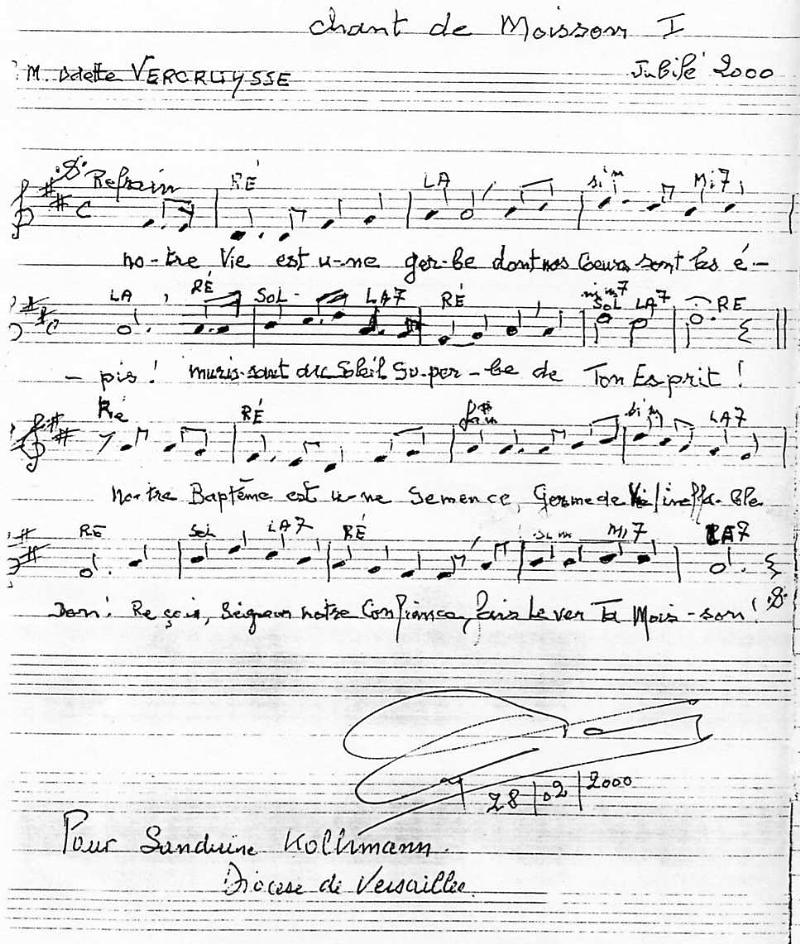 chant de Moisson I
M. Odette VERCRUYSSE Jubilé 2000
Refrain RÉ LA si m Mi7
C
no-tre Vie est u-ne ger-be dont nos Coeurs sont les é-
LA RÉ SOL - LA7 RÉ mi m7 SOL LA7 RE
- pis! muris-sant au Soleil Su-per-be de Ton Esprit!
Ré RÉ fa# m si m LA7
no-tre Baptême est u-ne Semence, Germe de Vie / ineffa-ble
RE Sol LA7 RÉ si m Mi7 LA7
Don! Re çois, Seigneur notre Confiance, fais Lever Ta Mois-son!
28 | 02 | 2000
Pour Sandrine Kollmann.
Diocèse de Versailles.